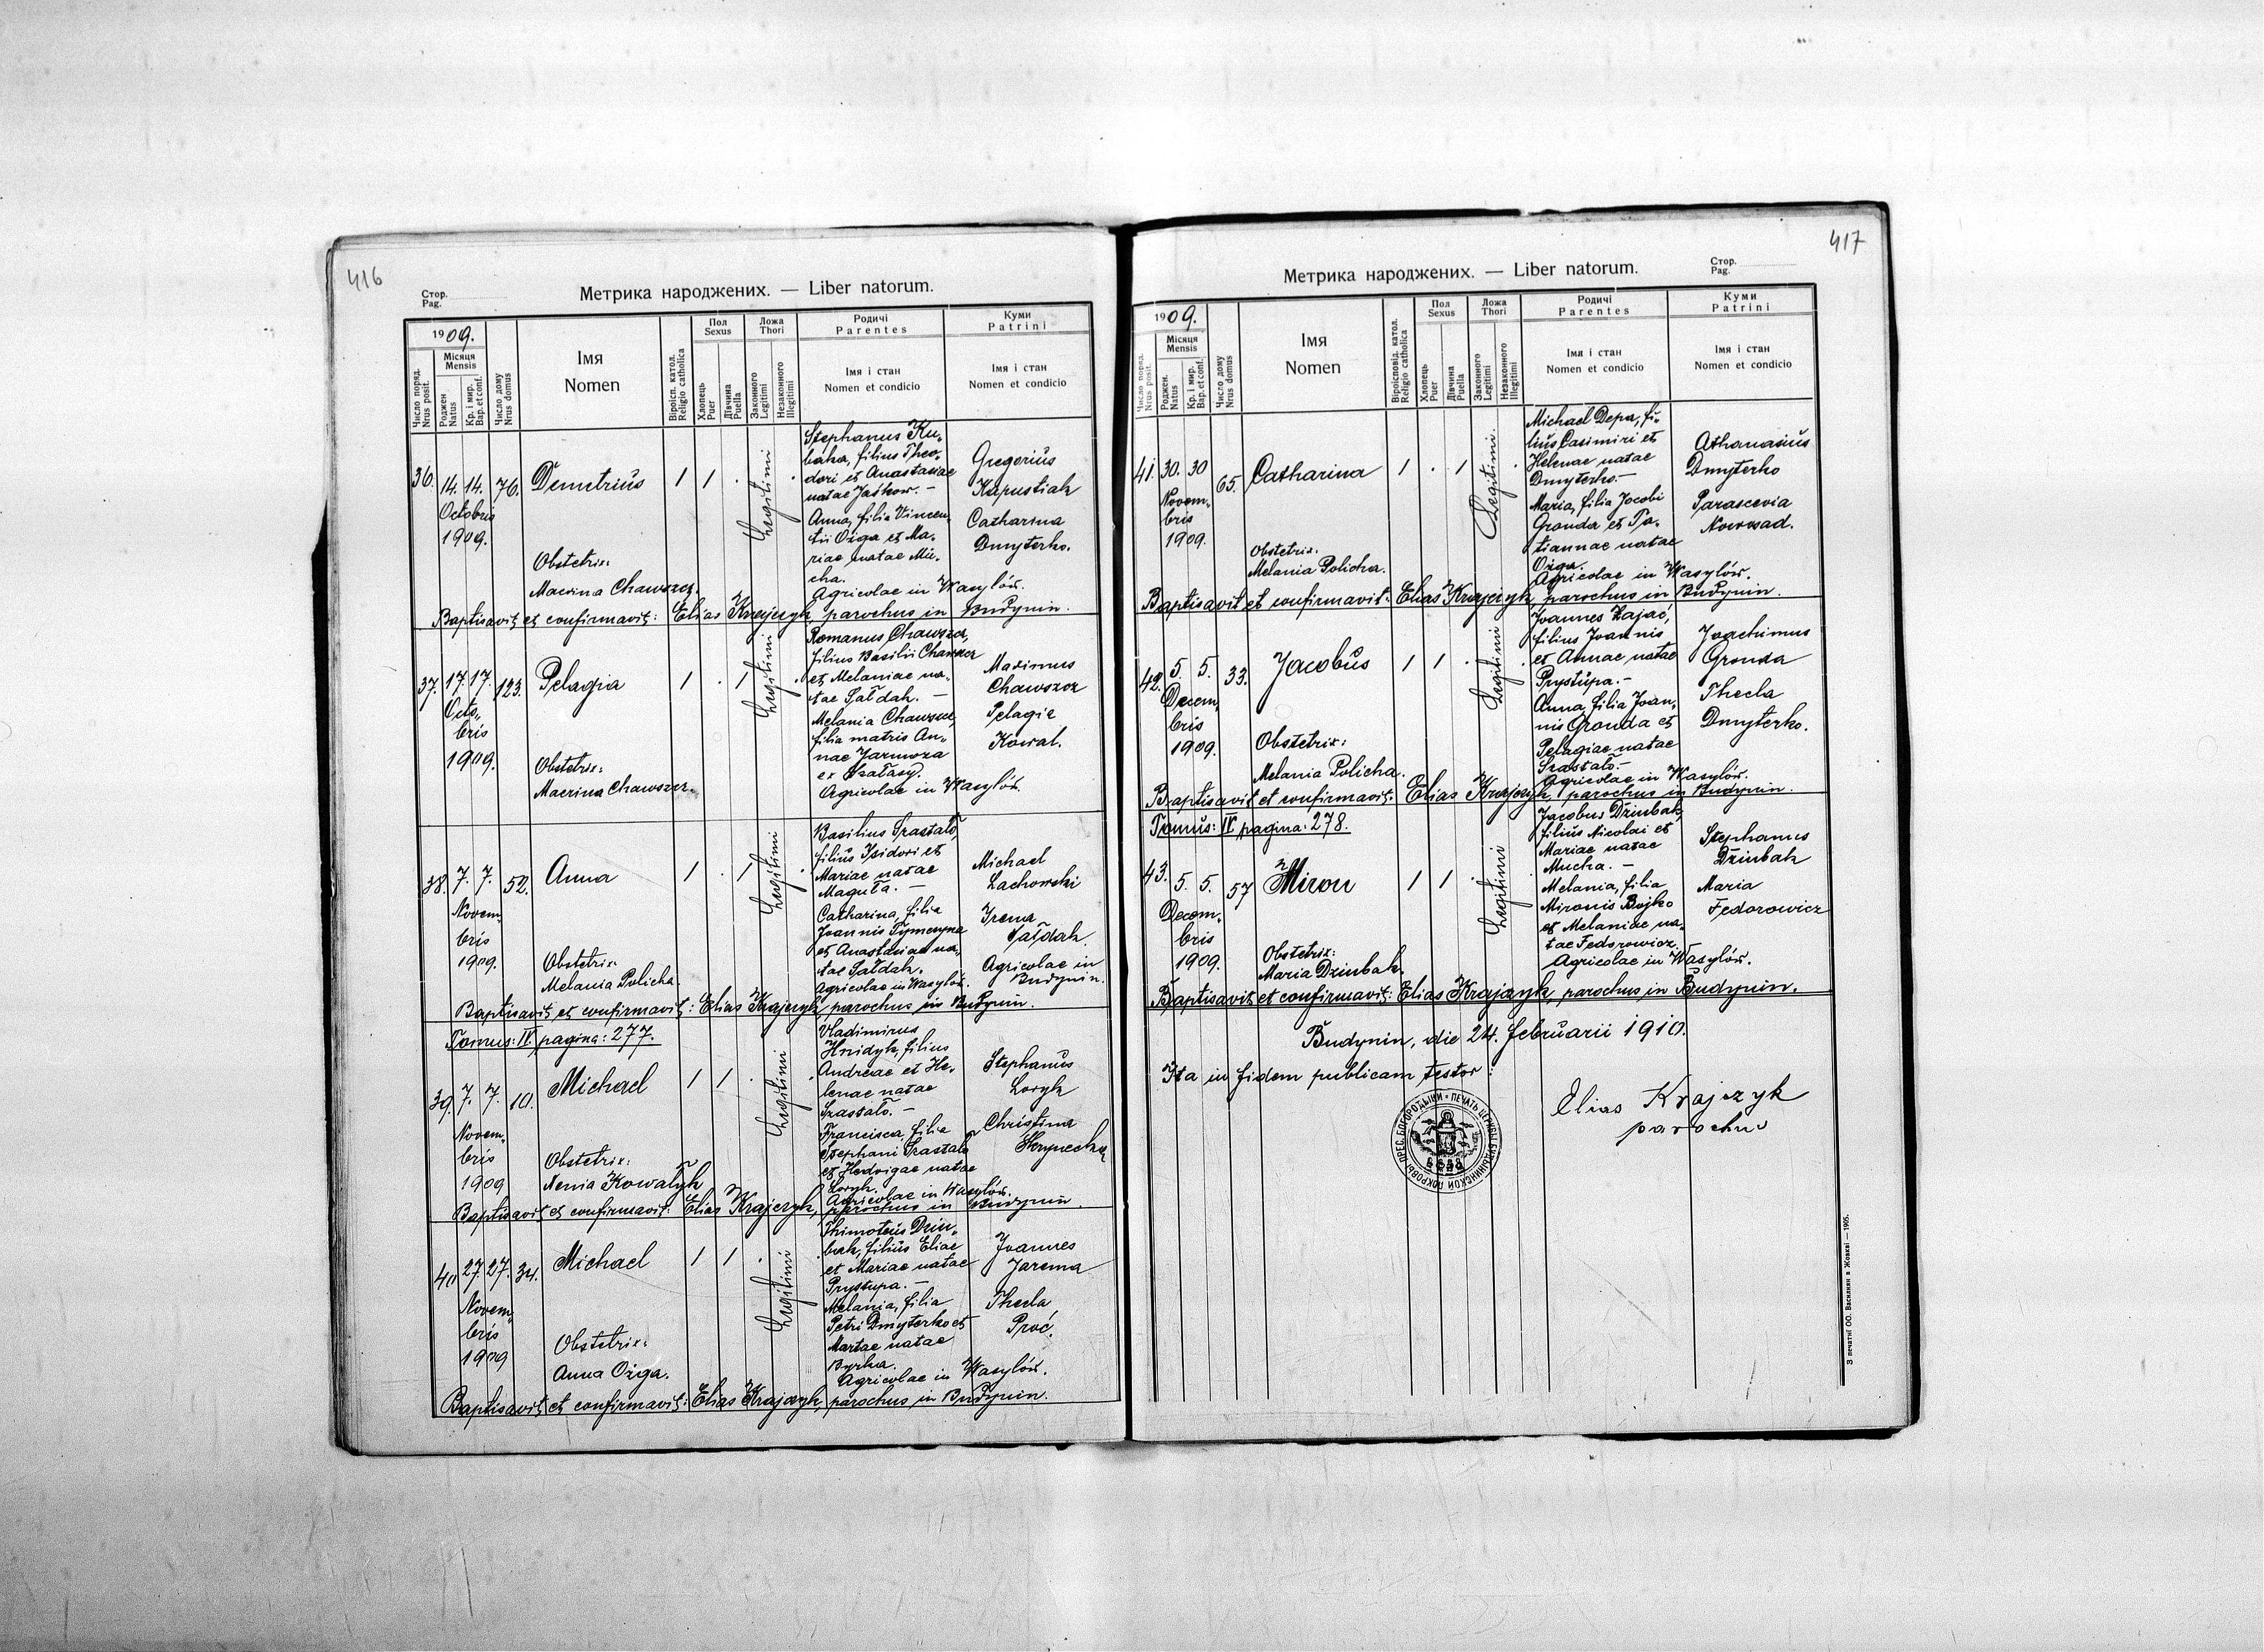 416
Стор.
Pag.
Метрика народжених. — Liber natorum.
1909.
Число поряд.
Nrus posit.
Місяця
Mensis
Роджен
Natus
Кр. і мир.
Bap. et conf.
Число дому
Nrus domus
Імя
Nomen
Віроісп. катол.
Religio catholica
Пол
Sexus
Хлопець
Puer
Дївчина
Puella
Ложа
Thori
Законного
Legitimi
Незаконного
Illegitimi
Родичі
Parentes
Імя і стан
Nomen et condicio
Куми
Patrini
Імя і стан
Nomen et condicio
36. 14. 14. 76. Demetrius 1 1 . Legitimi .
Octobris
1909.
Obstetrix:
Macrina Chawszcz.
Stephanus Ku-
baka, filius Theo-
dori et Anastasiae
natae Jaśkow. —
Anna, filia Vincen-
tii Ożga et Ma-
riae natae Mu-
cha.
Agricolae in Wasylów.
Gregorius
Kapustiak
Catharina
Dmyterko.
Baptisavit et confirmavit: Elias Krajczyk, parochus in Budynin.
37. 17. 17. 123. Pelagia 1 . 1 Legitimi .
Octo-
bris
1909.
Obstetrix:
Macrina Chawszcz.
Romanus Chawszcz,
filius Basilii Chawszcz
et Melaniae na-
tae Sałdak. —
Melania Chawszcz,
filia matris An-
nae Jarmoza
ex Szałasy.
Agricolae in Wasylów.
Maximus
Chawszcz
Pelagia
Kowal.
38. 7. 7. 52. Anna 1 . 1 Legitimi .
Novem-
bris
1909.
Obstetrix:
Melania Policha.
Basilius Szastało,
filius Isidori et
Mariae natae
Maguła. —
Catharina, filia
Joannis Tymczyna
et Anastasiae na-
tae Sałdak.
Agricolae in Wasylów.
Michael
Lachowski
Irena
Sałdak
Agricolae in
Budynin.
Baptisavit et confirmavit: Elias Krajczyk, parochus in Budynin.
Tomus: IV pagina: 277.
39. 7. 7. 10. Michael 1 1 . Legitimi .
Novem-
bris
1909
Obstetrix:
Xenia Kowalyk
Vladimirus
Hnidyk, filius
Andreae et He-
lenae natae
Szastało. —
Francisca, filia
Stephani Szastało
et Hedvigae natae
Loryk.
Agricolae in Wasylów.
Stephanus
Loryk
Christina
Baptisavit et confirmavit: Elias Krajczyk, parochus in Budynin.
40. 27. 27. 34. Michael 1 1 . Legitimi .
Novem-
bris
1909
Obstetrix:
Anna Ożga.
Thimoteus Dziu-
bak, filius Eliae
et Mariae natae
Prystupa. —
Melania, filia
Petri Dmyterko et
Martae natae
Byrka.
Agricolae in Wasylów.
Joannes
Jarema
Thecla
Proć.
Baptisavit et confirmavit: Elias Krajczyk, parochus in Budynin.
417
Стор.
Pag.
Метрика народжених. — Liber natorum.
1909.
Число поряд.
Nrus posit.
Місяця
Mensis
Роджен.
Natus
Кр. і мир.
Bap. et conf.
Число дому
Nrus domus
Імя
Nomen
Віроісповід. катол.
Religio catholica
Пол
Sexus
Хлопець
Puer
Дївчина
Puella
Ложа
Thori
Законного
Legitimi
Незаконного
Illegitimi
Родичі
Parentes
Імя і стан
Nomen et condicio
Куми
Patrini
Імя і стан
Nomen et condicio
41. 30. 30 65. Catharina 1 . 1 Legitimi. .
Novem-
bris
1909.
Obstetrix:
Melania Policha.
Michael Depa, fi-
lius Casimiri et
Helenae natae
Dmyterko. —
Maria, filia Jacobi
Gronda et Ta-
tiannae natae
Ożga.
Agricolae in Wasylów.
Athanasius
Dmyterko
Parascevia
Nowosad.
Baptisavit et confirmavit: Elias Krajczyk, parochus in Budynin.
42. 5. 5. 33. Jacobus 1 1 . Legitimi .
Decem
bris
1909.
Obstetrix:
Melania Policha.
Joannes Zająć,
filius Joannis
et Annae natae
Prystupa. —
Anna, filia Joan-
nis Gronda et
Pelagiae natae
Szastało. —
Agricolae in Wasylów.
Joachimus
Gronda
Thecla
Dmyterko.
Baptisavit et confirmavit: Elias Krajczyk, parochus in Budynin.
Tomus: IV pagina: 278.
43. 5. 5. 57 Miron 1 1 . Legitimi .
Decem-
bris
1909.
Obstetrix:
Maria Dziubak.
Jacobus Dziubak,
filius Nicolai et
Mariae natae
Mucha. —
Melania, filia
Mironis Bojko
et Melaniae na-
tae Fedorowicz.
Agricolae in Wasylów.
Stephanus
Dziubak
Maria
Fedorowicz
Baptisavit et confirmavit: Elias Krajczyk, parochus in Budynin.
Budynin, die 24. februarii 1910.
Ita in fidem publicam testor:
Elias Krajczyk
parochus
З печатні ОО. Василиян в Жовкві — 1905.